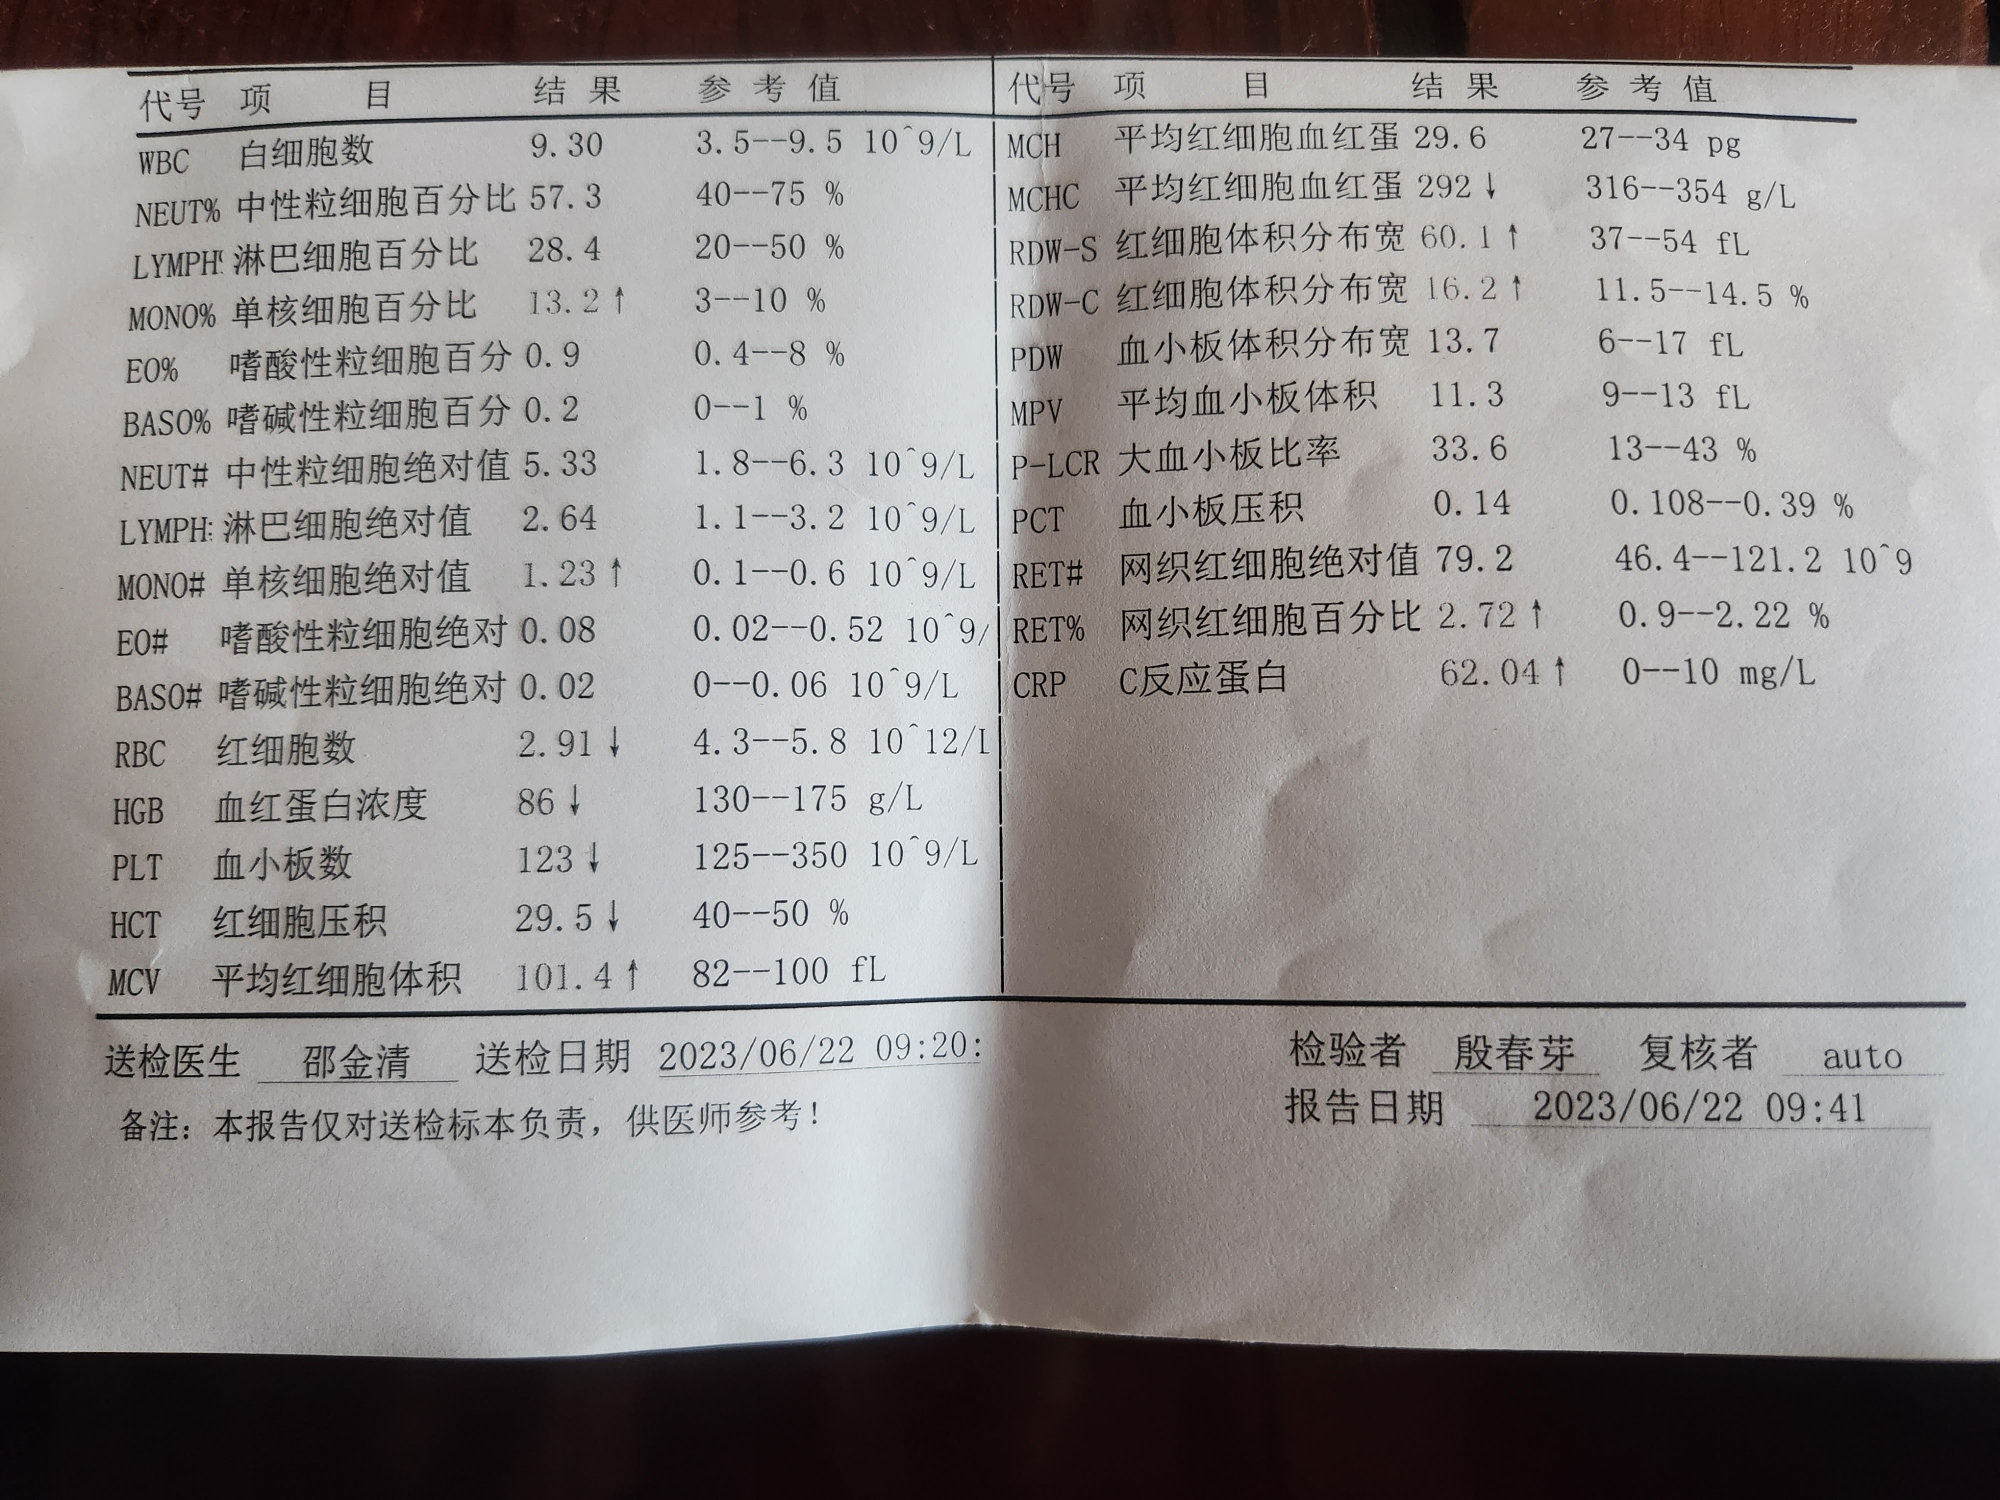 代号 项 目 结 果 参 考 值
WBC 白细胞数 9.30 3.5--9.5 10^9/L
NEUT% 中性粒细胞百分比 57.3 40--75 %
LYMPH 淋巴细胞百分比 28.4 20--50 %
MONO% 单核细胞百分比 13.2↑ 3--10 %
EO% 嗜酸性粒细胞百分 0.9 0.4--8 %
BASO% 嗜碱性粒细胞百分 0.2 0--1 %
NEUT# 中性粒细胞绝对值 5.33 1.8--6.3 10^9/L
LYMPH 淋巴细胞绝对值 2.64 1.1--3.2 10^9/L
MONO# 单核细胞绝对值 1.23↑ 0.1--0.6 10^9/L
EO# 嗜酸性粒细胞绝对 0.08 0.02--0.52 10^9/
BASO# 嗜碱性粒细胞绝对 0.02 0--0.06 10^9/L
RBC 红细胞数 2.91↓ 4.3--5.8 10^12/L
HGB 血红蛋白浓度 86↓ 130--175 g/L
PLT 血小板数 123↓ 125--350 10^9/L
HCT 红细胞压积 29.5↓ 40--50 %
MCV 平均红细胞体积 101.4↑ 82--100 fL
代号 项 目 结 果 参 考 值
MCH 平均红细胞血红蛋 29.6 27--34 pg
MCHC 平均红细胞血红蛋 292↓ 316--354 g/L
RDW-S 红细胞体积分布宽 60.1↑ 37--54 fL
RDW-C 红细胞体积分布宽 16.2↑ 11.5--14.5 %
PDW 血小板体积分布宽 13.7 6--17 fL
MPV 平均血小板体积 11.3 9--13 fL
P-LCR 大血小板比率 33.6 13--43 %
PCT 血小板压积 0.14 0.108--0.39 %
RET# 网织红细胞绝对值 79.2 46.4--121.2 10^9
RET% 网织红细胞百分比 2.72↑ 0.9--2.22 %
CRP C反应蛋白 62.04↑ 0--10 mg/L
送检医生 邵金清 送检日期 2023/06/22 09:20: 检验者 殷春芽 复核者 auto
报告日期 2023/06/22 09:41
备注: 本报告仅对送检标本负责, 供医师参考!